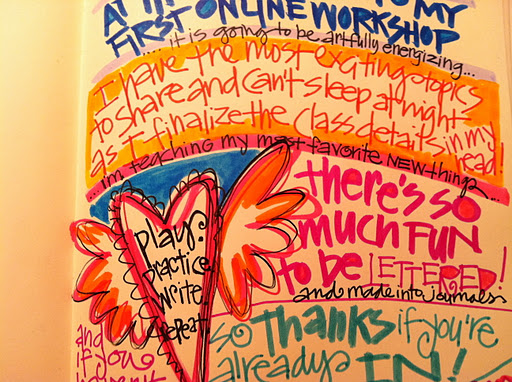 TO MY
FIRST ONLINE WORKSHOP
.... it is going to be artfully energizing...
I have the most exciting topics
to share and can't sleep at night
as I finalize the class details in my
head!
... i'm teaching my most favorite NEW things...
there's so
much FUN
to be LETTERED!
and made into journals
play:
practice
write
repeat
so thanks if you're
already IN!
and
if you
haven't